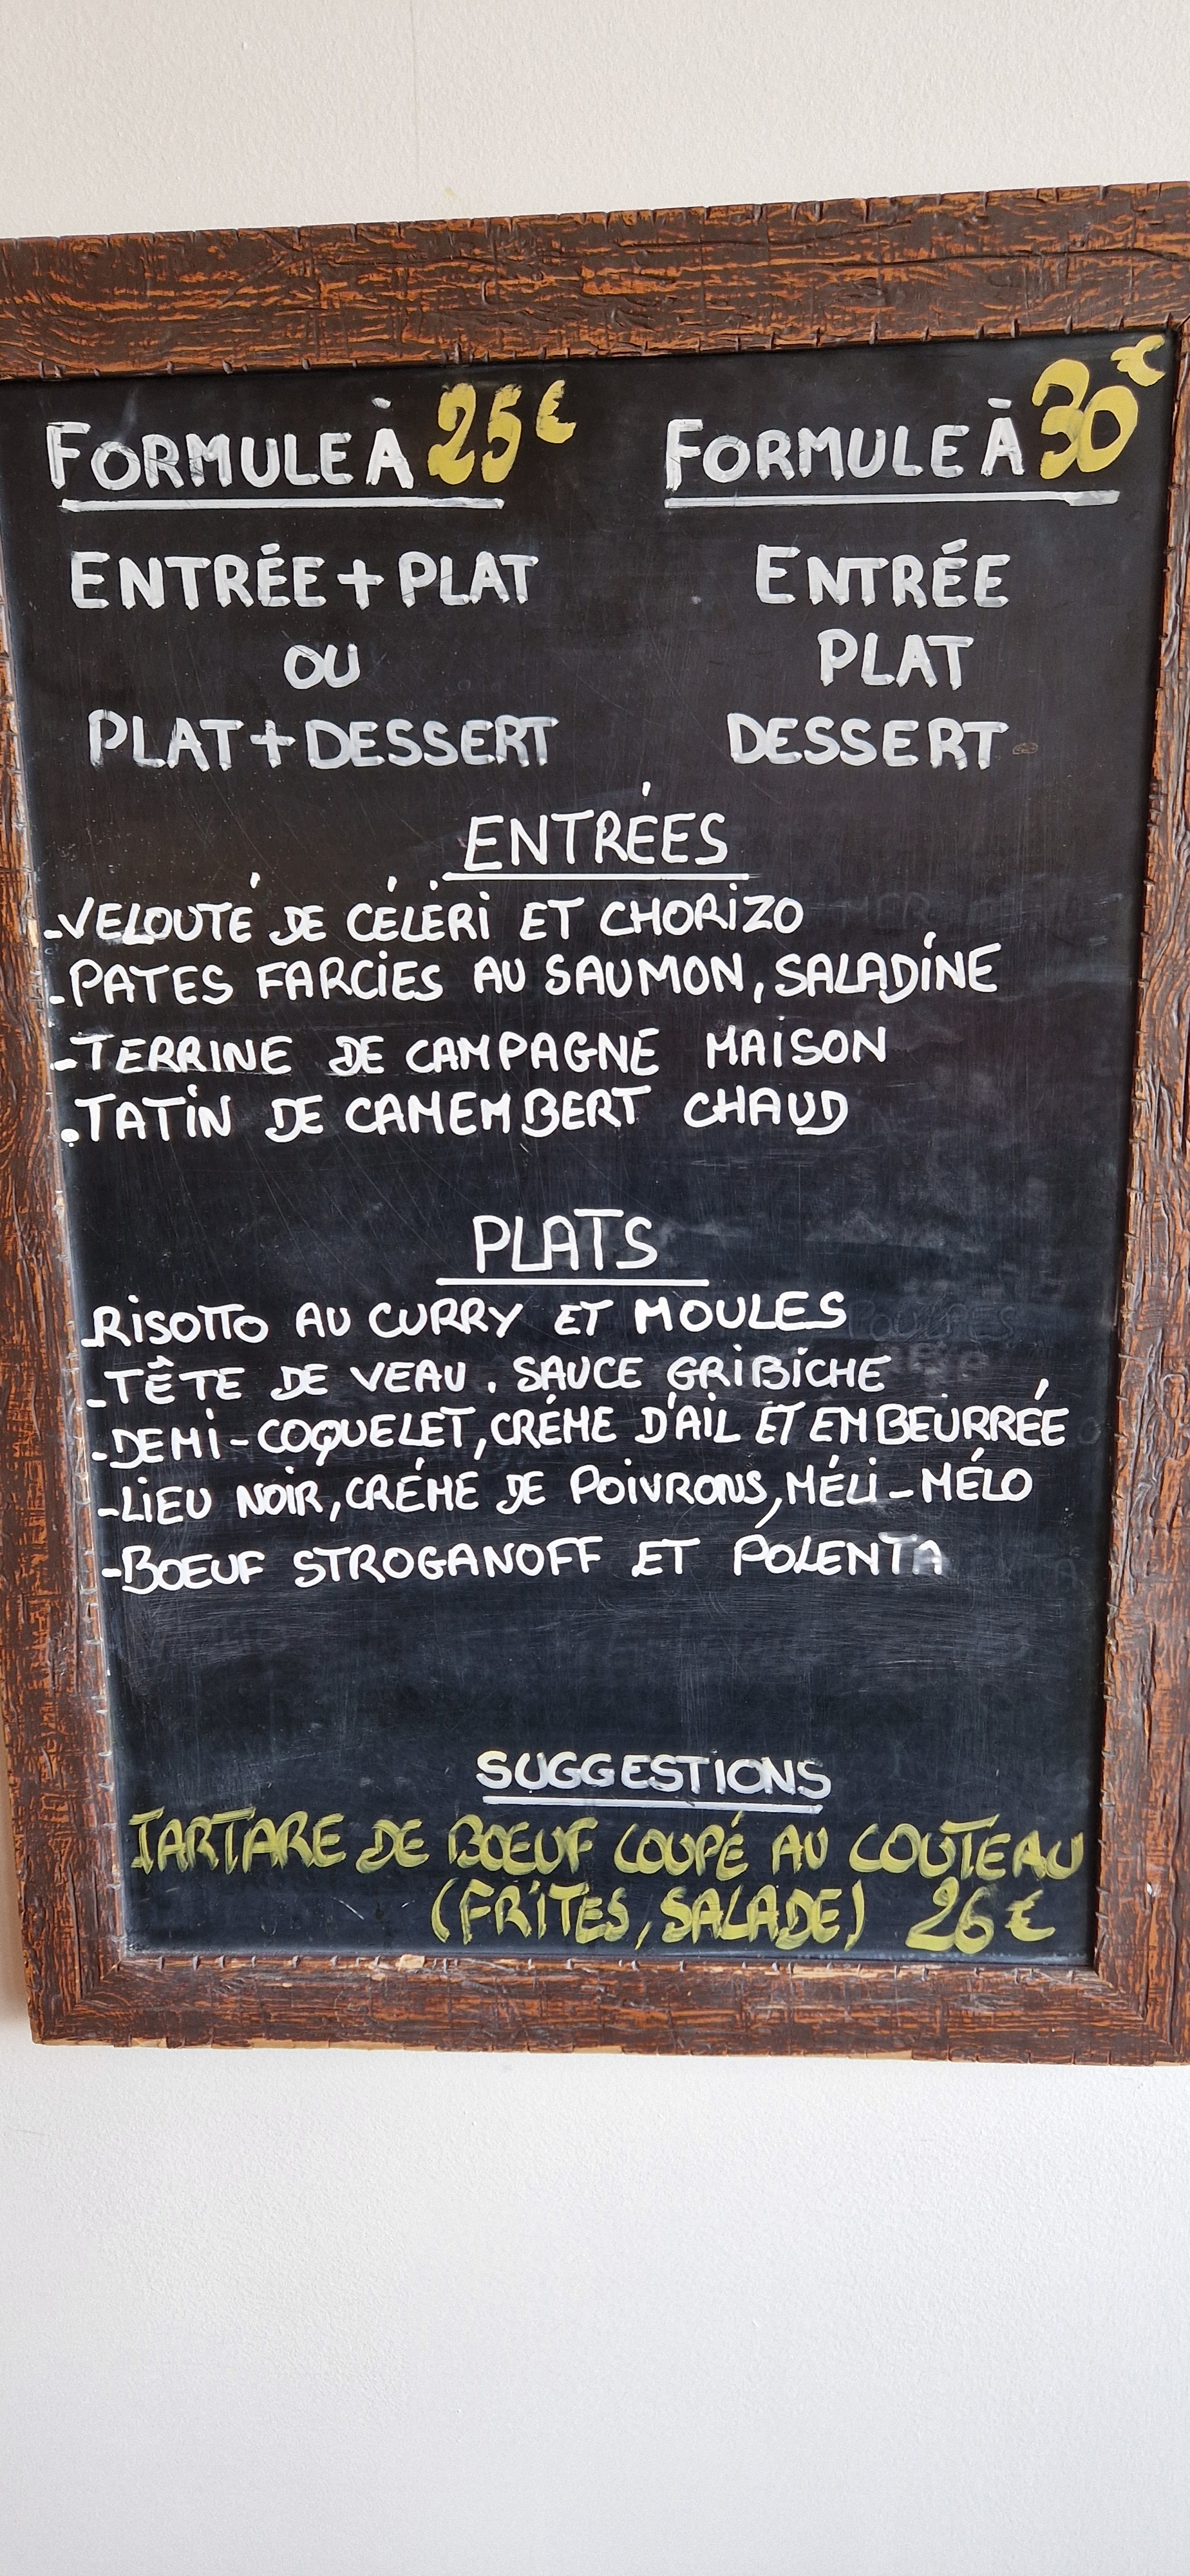 FORMULE À 25€
FORMULE À 30€
ENTRÉE + PLAT
OU
PLAT + DESSERT
ENTRÉE
PLAT
DESSERT
ENTRÉES
-VELOUTÉ DE CÉLÉRI ET CHORIZO
-PATES FARCIES AU SAUMON, SALADINE
-TERRINE DE CAMPAGNE MAISON
.TATIN DE CAMEMBERT CHAUD
PLATS
-RISOTTO AU CURRY ET MOULES
-TÊTE DE VEAU. SAUCE GRIBICHE
-DEMI-COQUELET, CRÉME D'AIL ET EMBEURRÉE
-LIEU NOIR, CRÉME DE POIVRONS, MÉLI-MÉLO
-BOEUF STROGANOFF ET POLENTA
SUGGESTIONS
TARTARE DE BOEUF COUPÉ AU COUTEAU
(FRITES, SALADE) 26€